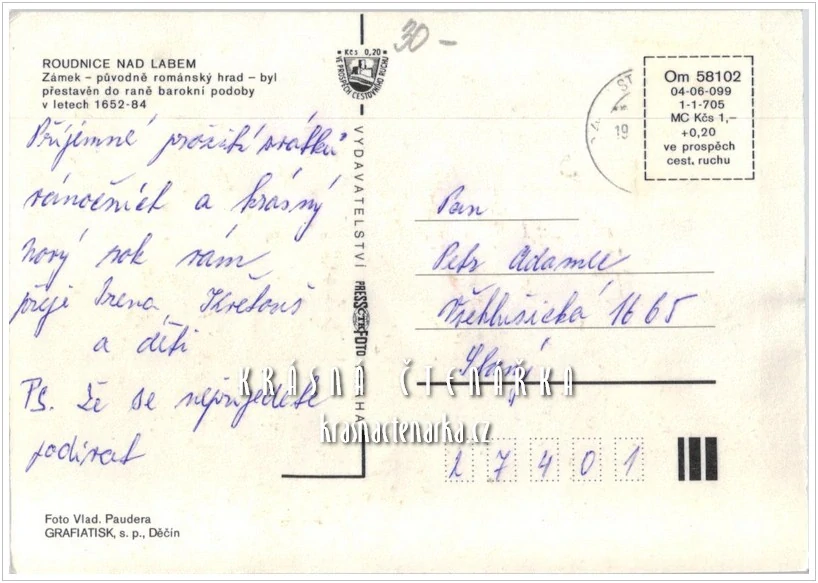 30-
ROUDNICE NAD LABEM
Zámek – původně románský hrad – byl
přestavěn do raně barokní podoby
v letech 1652-84
Příjemné prožití svátků
vánočních a krásný
Nový rok vám
přeje Irena, Květouš
a děti
Ps. Že se nepřijedete
podívat
Foto Vlad. Paudera
GRAFIATISK, s. p., Děčín
Kčs 0,20
VE PROSPĚCH CESTOVNÍHO RUCHU
VYDAVATELSTVÍ PRESSFOTO PRAHA
ČTK
ST
19
Om 58102
04-06-099
1-1-705
MC Kčs 1,–
+0,20
ve prospěch
cest. ruchu
Pan
Petr Adamec
Všehlušická 1665
Slaný
27401
KRÁSNÁ ČTENÁŘKA
krasnactenarka.cz